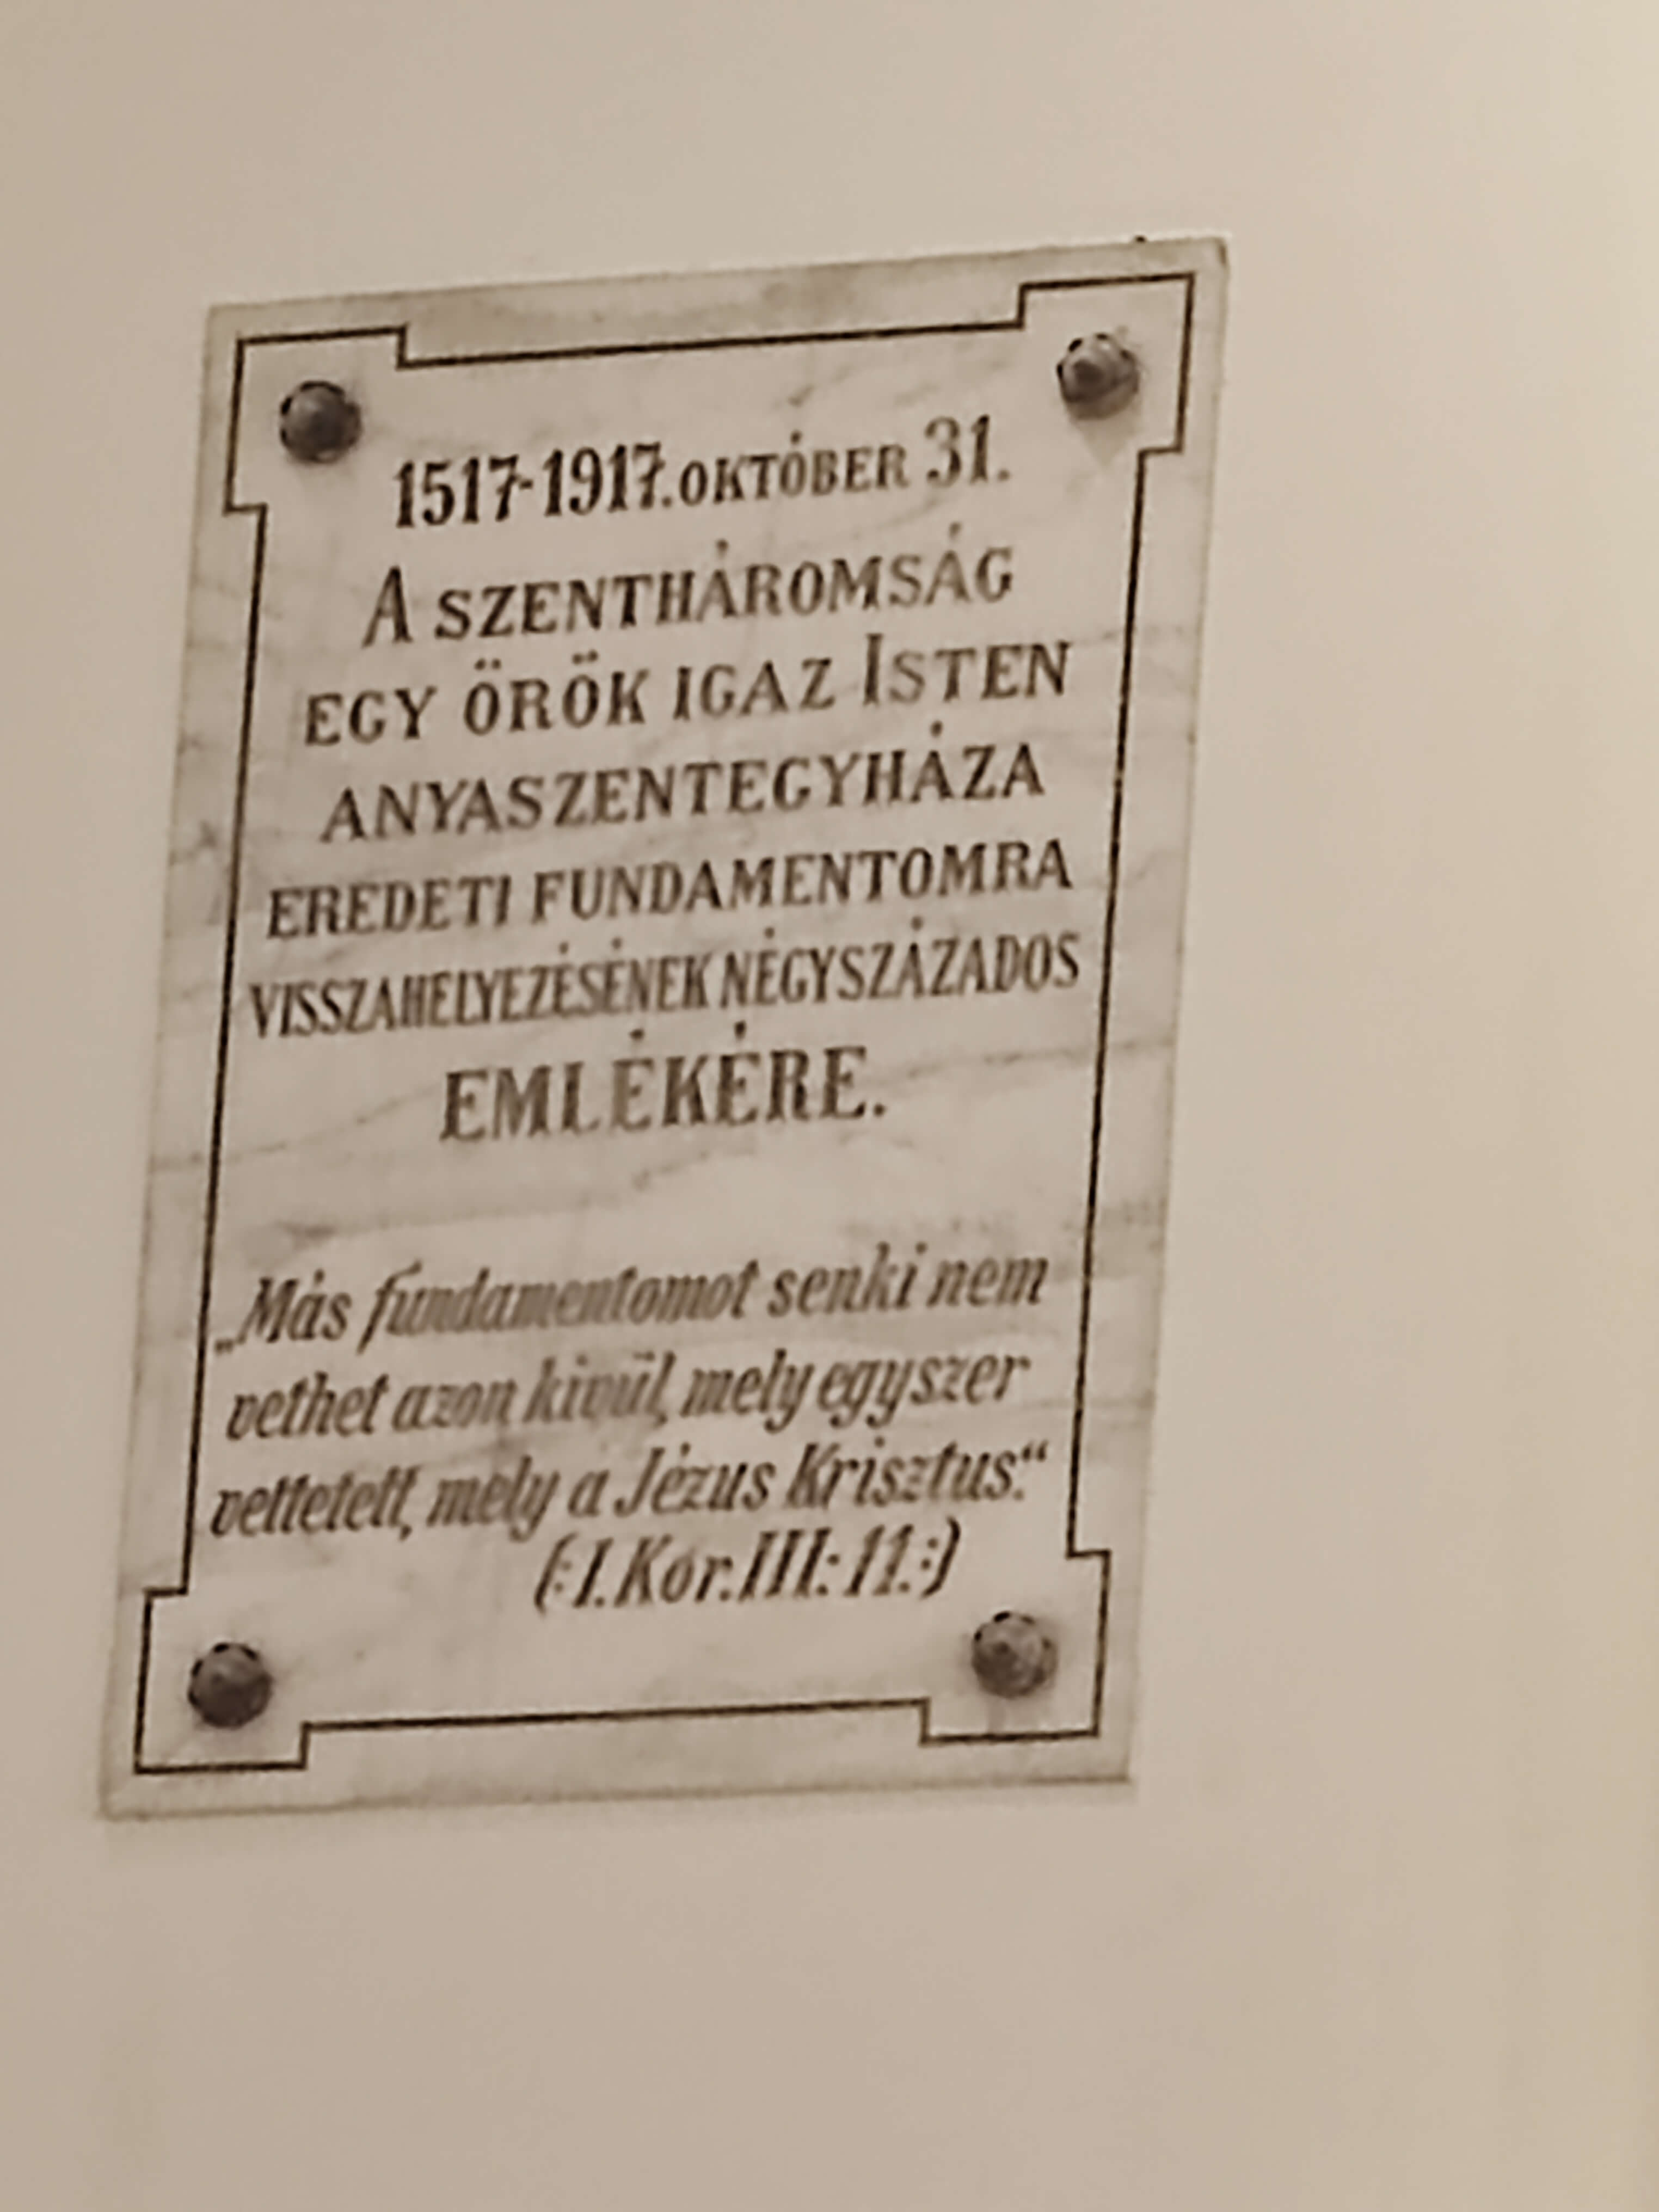 1517-1917. OKTÓBER 31.
A SZENTHÁROMSÁG
EGY ÖRÖK IGAZ ISTEN
ANYASZENTEGYHÁZA
EREDETI FUNDAMENTOMRA
VISSZAHELYEZÉSÉNEK NÉGYSZÁZADOS
EMLÉKÉRE.
„Más fundamentomot senki nem
vethet azon kivül, mely egyszer
vettetett, mely a Jézus Krisztus.“
(:I. Kor. III: 11.:)